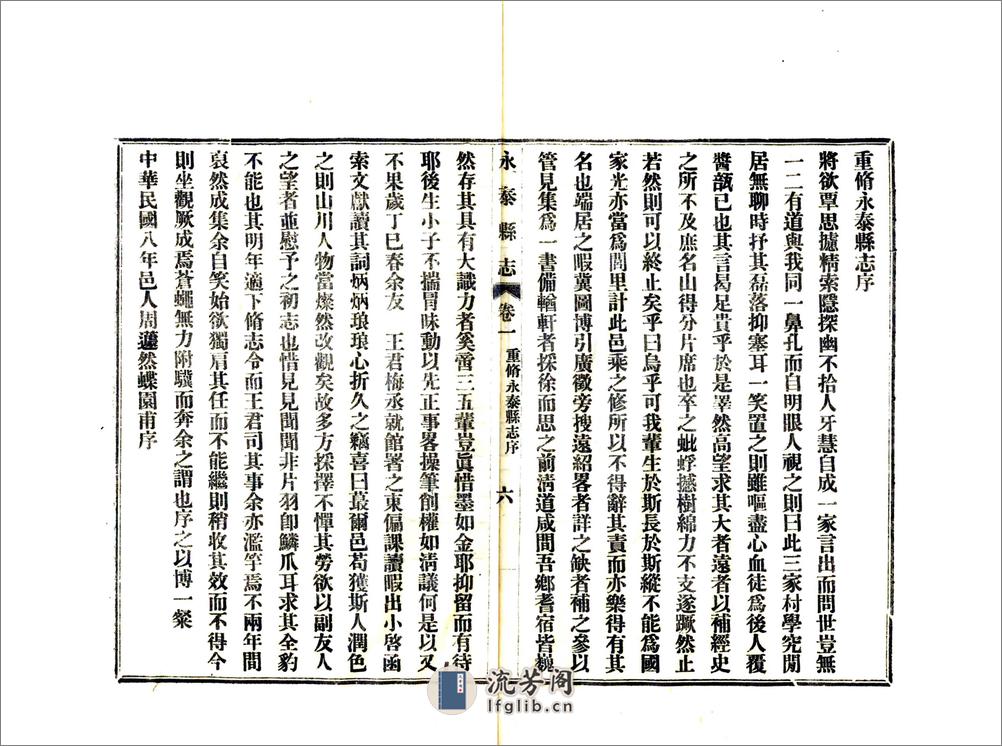 重脩永泰縣志序
將欲覃思攄精索隱探幽不拾人牙慧自成一家言出而問世豈無
一二有道與我同一鼻孔而自明眼人視之則曰此三家村學究閒
居無聊時抒其磊落抑塞耳一笑置之則雖嘔盡心血徒爲後人覆
醬瓿已也其言曷足貴乎於是睪然高望求其大者遠者以補經史
之所不及庶名山得分片席也卒之蚍蜉撼樹綿力不支遂蹶然止
若然則可以終止矣乎曰烏乎可我輩生於斯長於斯縱不能爲國
家光亦當爲閭里計此邑乘之修所以不得辭其責而亦樂得有其
名也端居之暇冀圖博引廣徵旁搜遠紹畧者詳之缺者補之參以
管見集爲一書備輶軒者採徐而思之前淸道咸間吾鄉耆宿皆巍
永泰縣志 卷一 重脩永泰縣志序 六
然存其具有大識力者奚啻三五輩豈眞惜墨如金耶抑留而有待
耶後生小子不揣冒昧動以先正事畧操筆削權如淸議何是以又
不果歲丁巳春余友 王君梅丞就館署之東偏課讀暇出小啓函
索文獻讀其詞炳炳琅琅心折久之竊喜曰蕞爾邑苟獲斯人潤色
之則山川人物當燦然改觀矣故多方採擇不憚其勞欲以副友人
之望者並慰予之初志也惜見見聞聞非片羽卽鱗爪耳求其全豹
不能也其明年適下脩志令而王君司其事余亦濫竽焉不兩年間
裒然成集余自笑始欲獨肩其任而不能繼則稍收其效而不得今
則坐觀厥成焉蒼蠅無力附驥而奔余之謂也序之以博一粲
中華民國八年邑人周蘧然蝶園甫序
流芳阁
lfglib.cn